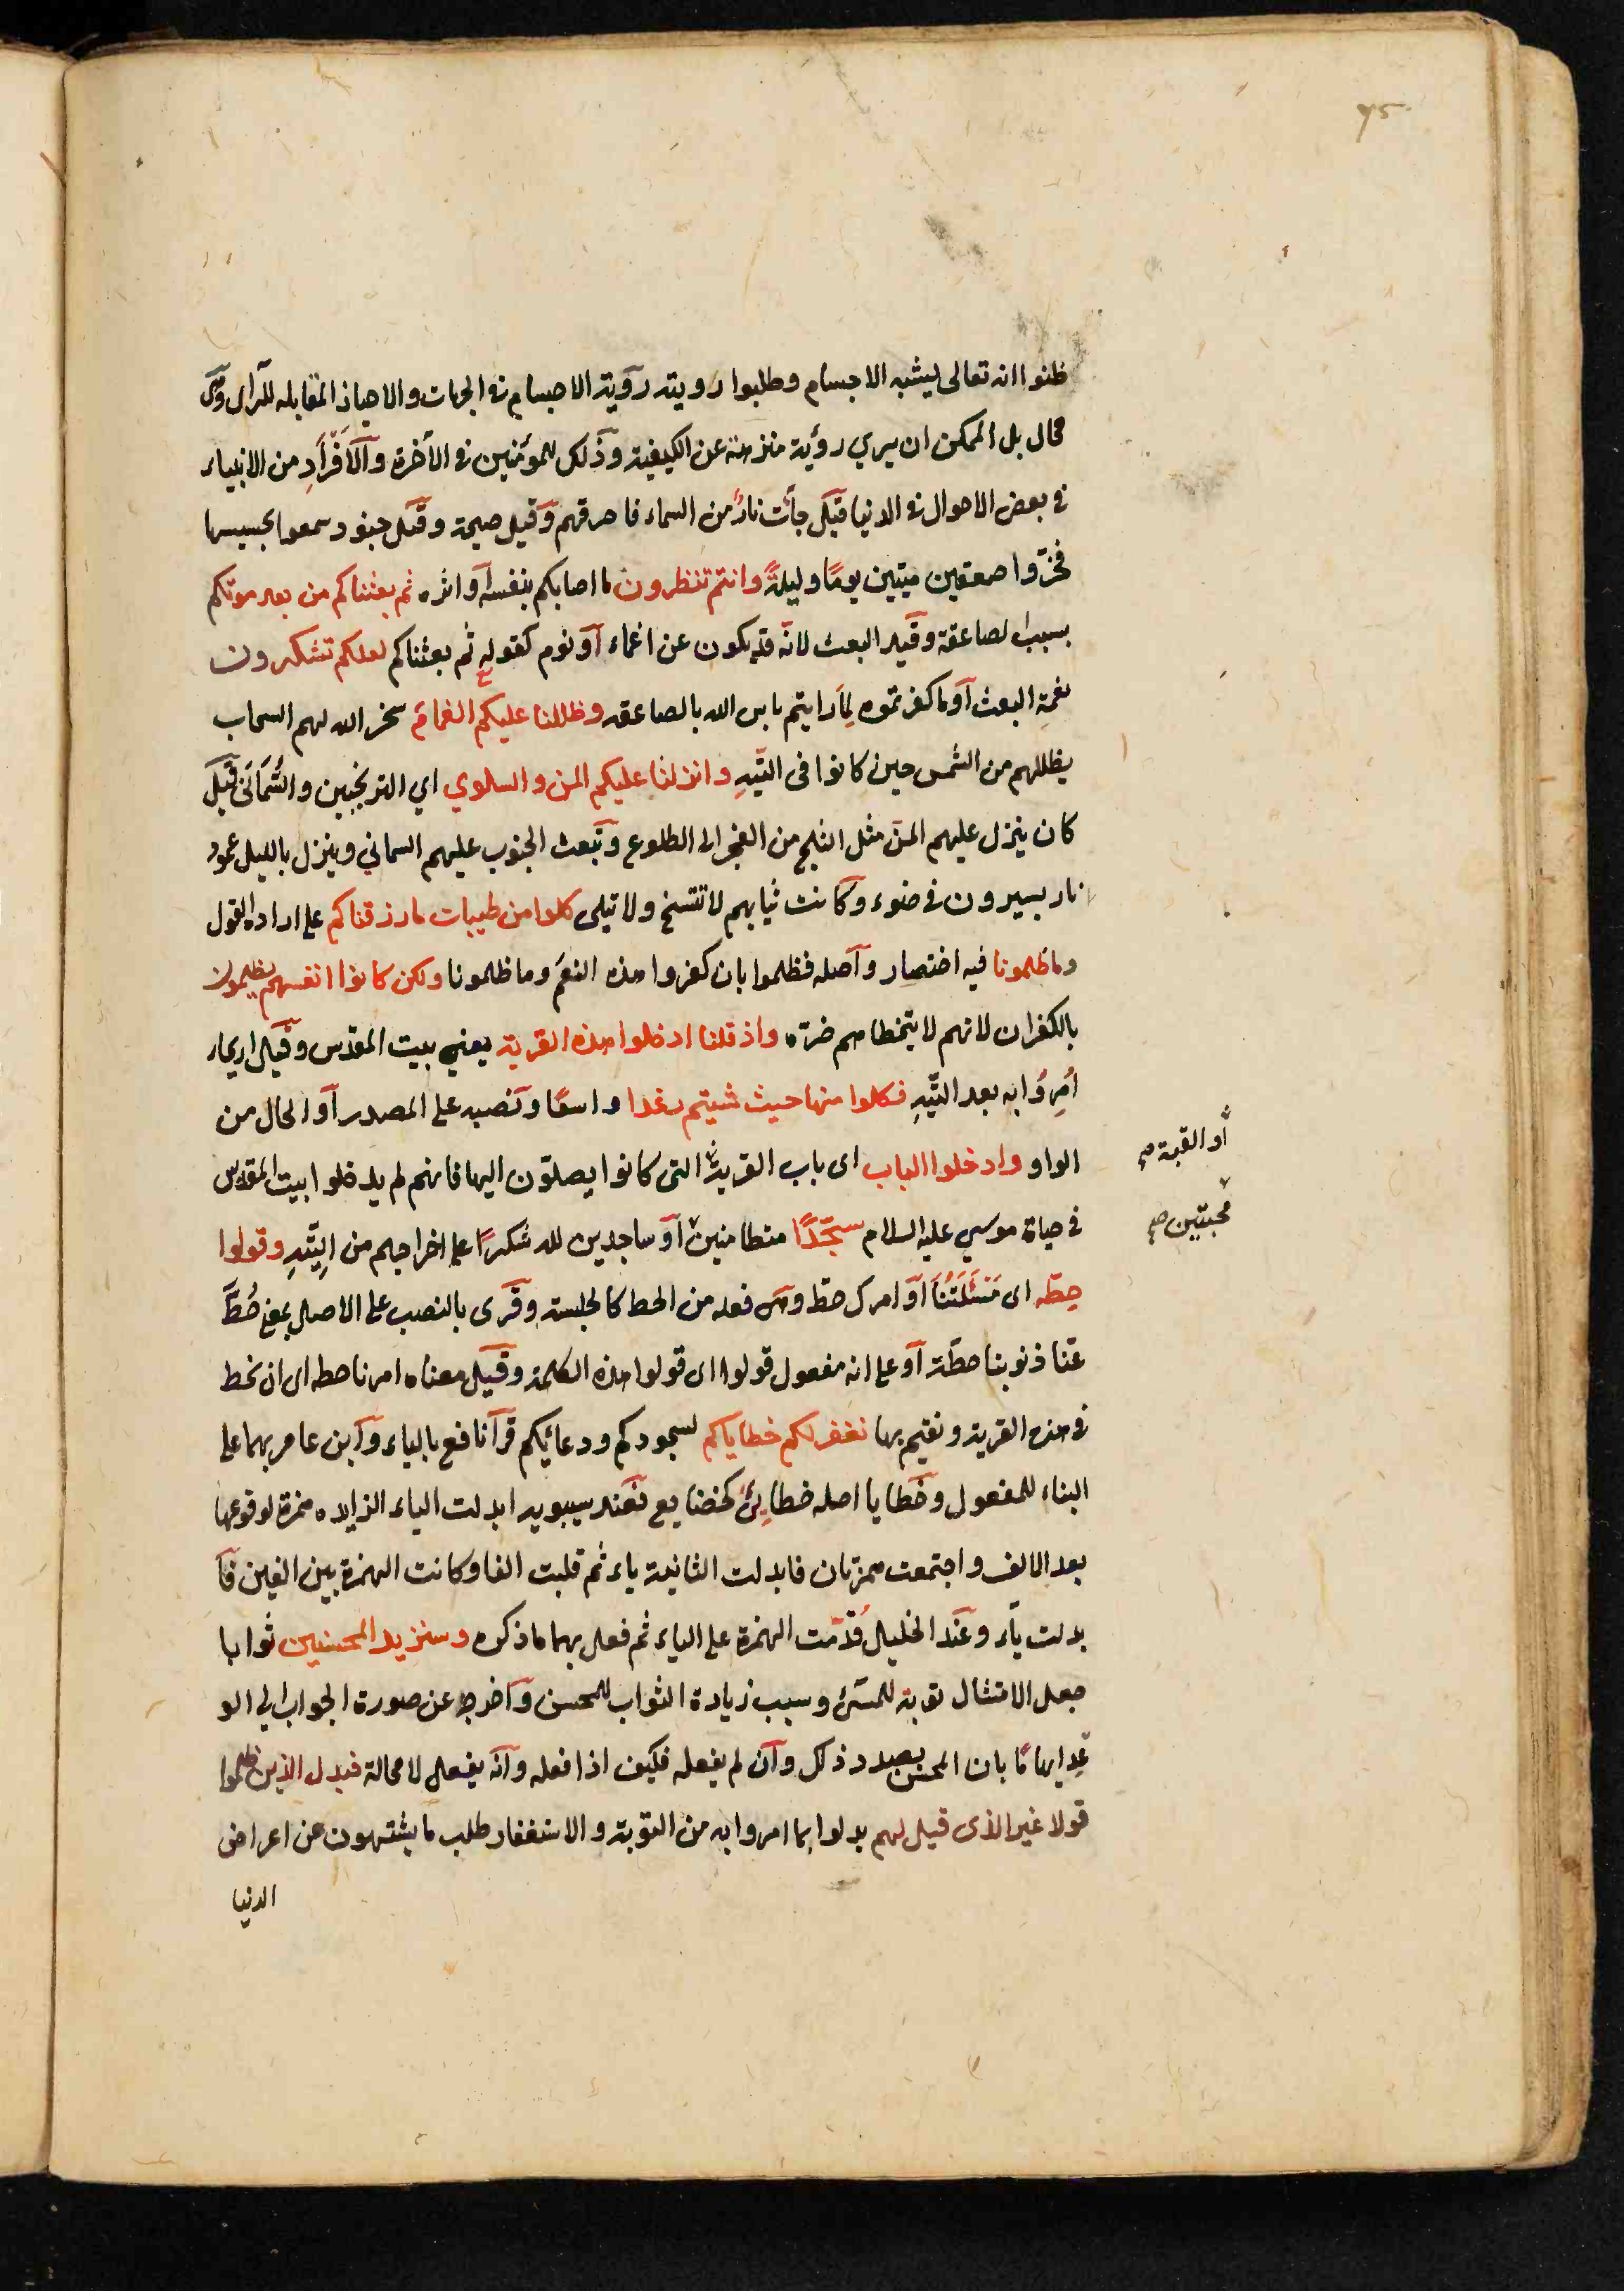 ظنوا انه تعالى يشبه الاجسام وطلبوا رويته رؤية الاجسام فى الجهات والاحياز المقابله للرأى وهى
محال بل الممكن ان يري رؤية منزهة عن الكيفية وذلك للمؤمنين فى الآخرة والأفراد من الانبياء
في بعض الاحوال فى الدنيا قيل جأت نار من السماء فاحرقهم وقيل صيحة وقيل جنود سمعوا بحسيسها
فخرّوا صعقين ميتين يومًا وليلةً وانتم تنظرون ما اصابكم بنفسه او اثره ثم بعثناكم من بعد موتكم
بسبب الصاعقة وقيد البعث لانّه قد يكون عن اغماء او نوم كقوله ثم بعثناكم لعلكم تشكرون
نعمة البعث او ما كفرتموه لما رايتم باس الله بالصاعقه وظللنا عليكم الغمام سخر الله لهم السحاب
يظللهم من الشمس حين كانوا فى التّيهِ وانزلنا عليكم المن والسلوي اي الترنجبين والسُّمَانَى قيل
كان ينزل عليهم المنّ مثل الثلج من الفجر الى الطلوع وتبعث الجنوب عليهم السماني وينزل بالليل عمود
نار يسيرون في ضوء وكانت ثيابهم لا تتسخ ولا تبلى كلوا من طيبات ما رزقناكم على اراده القول
وما ظلمونا فيه اختصار واصله فظلموا بان كفروا هذه النعم وما ظلمونا ولكن كانوا انفسهم يظلمون
بالكفران لانهم لا يتخطاهم ضرّه واذ قلنا ادخلوا هذه القرية يعني بيت المقدس وقيل اريحا
اُمِرُوا به بعد التّيهِ فكلوا منها حيث شيتم رغدا واسعًا ونصبه على المصدر او الحال من
الواو وادخلوا الباب اى باب القرية التى كانوا يصلّون اليها فانهم لم يدخلوا بيت المقدس
او القبة صح
في حياة موسي عليه السلام سجّدًا متطامنين او ساجدين لله شكرًا على اخراجهم من التّيهِ وقولوا
مخبتين صح
حِطّه اى مَسْئَلَتُنَا او امرك حطّ وهى فعله من الحط كالجلسة وقرى بالنصب على الاصل بمعنى حُطَّ
عنّا ذنوبنا حطّة او على انه مفعول قولوا اى قولوا هذه الكلمة وقيل معناه امرنا حطه اى ان نحط
فى هذه القرية ونقيم بها نغفر لكم خطاياكم لسجودكم ودعائكم قرآ نافع بالياء وابن عامر بها على
البناء للمفعول وخطايا اصله خطايئ كخضايع فعند سيبويه ابدلت الياء الزايده همزة لوقوعها
بعد الالف واجتمعت همزتان فابدلت الثانية ياء ثم قلبت الفا وكانت الهمزة بين الفين فأ
بدلت ياء وعند الخليل قُدّمت الهمزة على الياء ثم فعل بهما ما ذكره وسنزيد المحسنين ثوابا
جعل الامتثال توبة للمسئ وسبب زيادة الثواب للمحسن واخرجه عن صورة الجواب الى الو
عدِ ايهامًا بان المحسن بصدد ذلك وان لم يفعله فكيف اذا فعله وانّه يفعل لا محالة فبدل الذين ظلموا
قولا غير الذى قيل لهم بدلوا بما امروا به من التوبة والاستغفار طلب ما يشتهون من اعراض
الدنيا